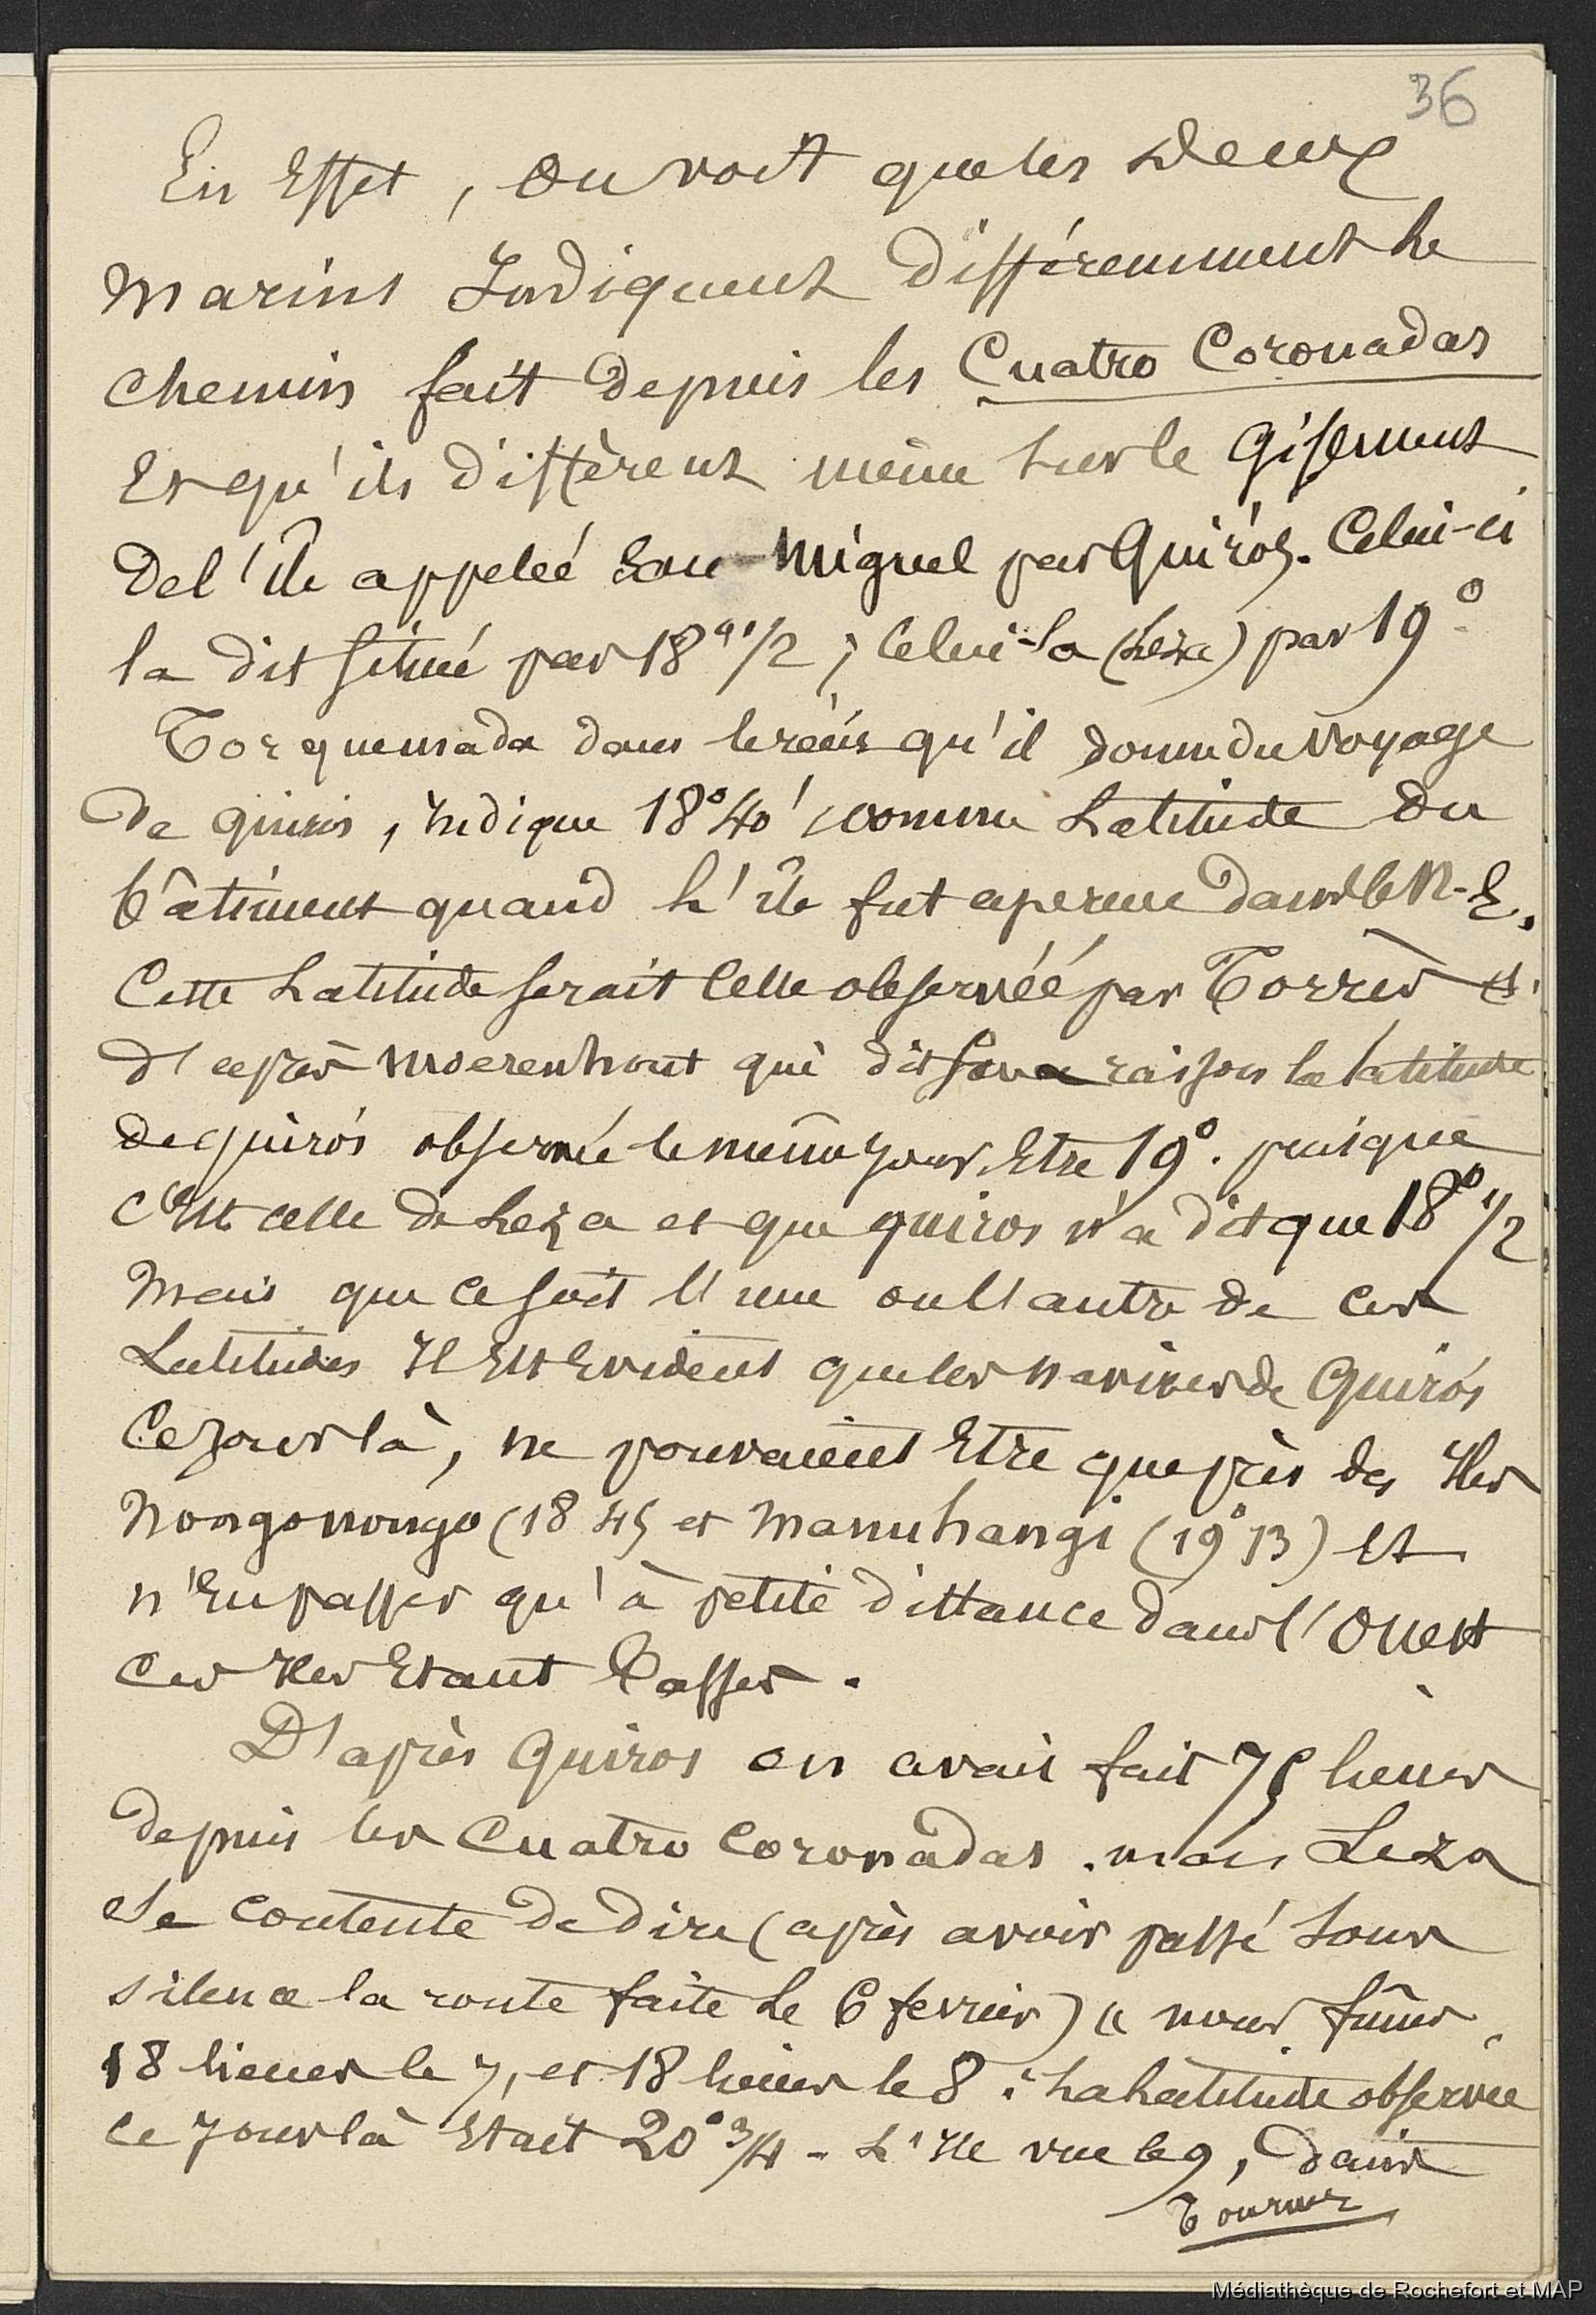 36
En Effet, on voit que les Deux
Marins Indiquent Différemment le
chemin fait depuis les Cuatro Coronadas
Et qu'ils diffèrent même sur le Gisement
Del'île appelée San-Miguel par Quirós. Celui-ci
la dit située par 18° 1/2 ; Celui-là (Leza) par 19°
Torquemada dans le récit qu'il donne du voyage
De Quiros, indique 18° 40' comme Latitude du
bâtiment quand l'île fut aperçue dans le N-E.
Cette Latitude serait celle observée par Torrès et
d'après Moerenhout qui dit sans raison la latitude
de Quirós observée le même jour Etre 19°. puisque
c'Est celle de Leza et que Quiros n'a dit que 18° 1/2
Mais que ce soit l'une ou l'autre de ces
Latitudes Il Est Evident que les navires de Quirós
Ce jour là, ne pouvaient Etre que près des Iles
Nongonongo (18 45 et Manuhangi (19° 13) Et
n'En passer qu'à petite distance dans l'Ouest
Ces Iles Etant Basses.
D'après Quiros on avait fait 75 lieues
depuis les Cuatro Coronadas. mais Leza
se contente de dire (après avoir passé sous
silence la route faite le 6 fevrier) « nous fîmes
18 lieues le 7, et 18 lieues le 8 : La Latitude observée
ce jour là Etait 20° 3/4 - L'Ile vue le 9, dans
Tournez
Médiathèque de Rochefort et MAP